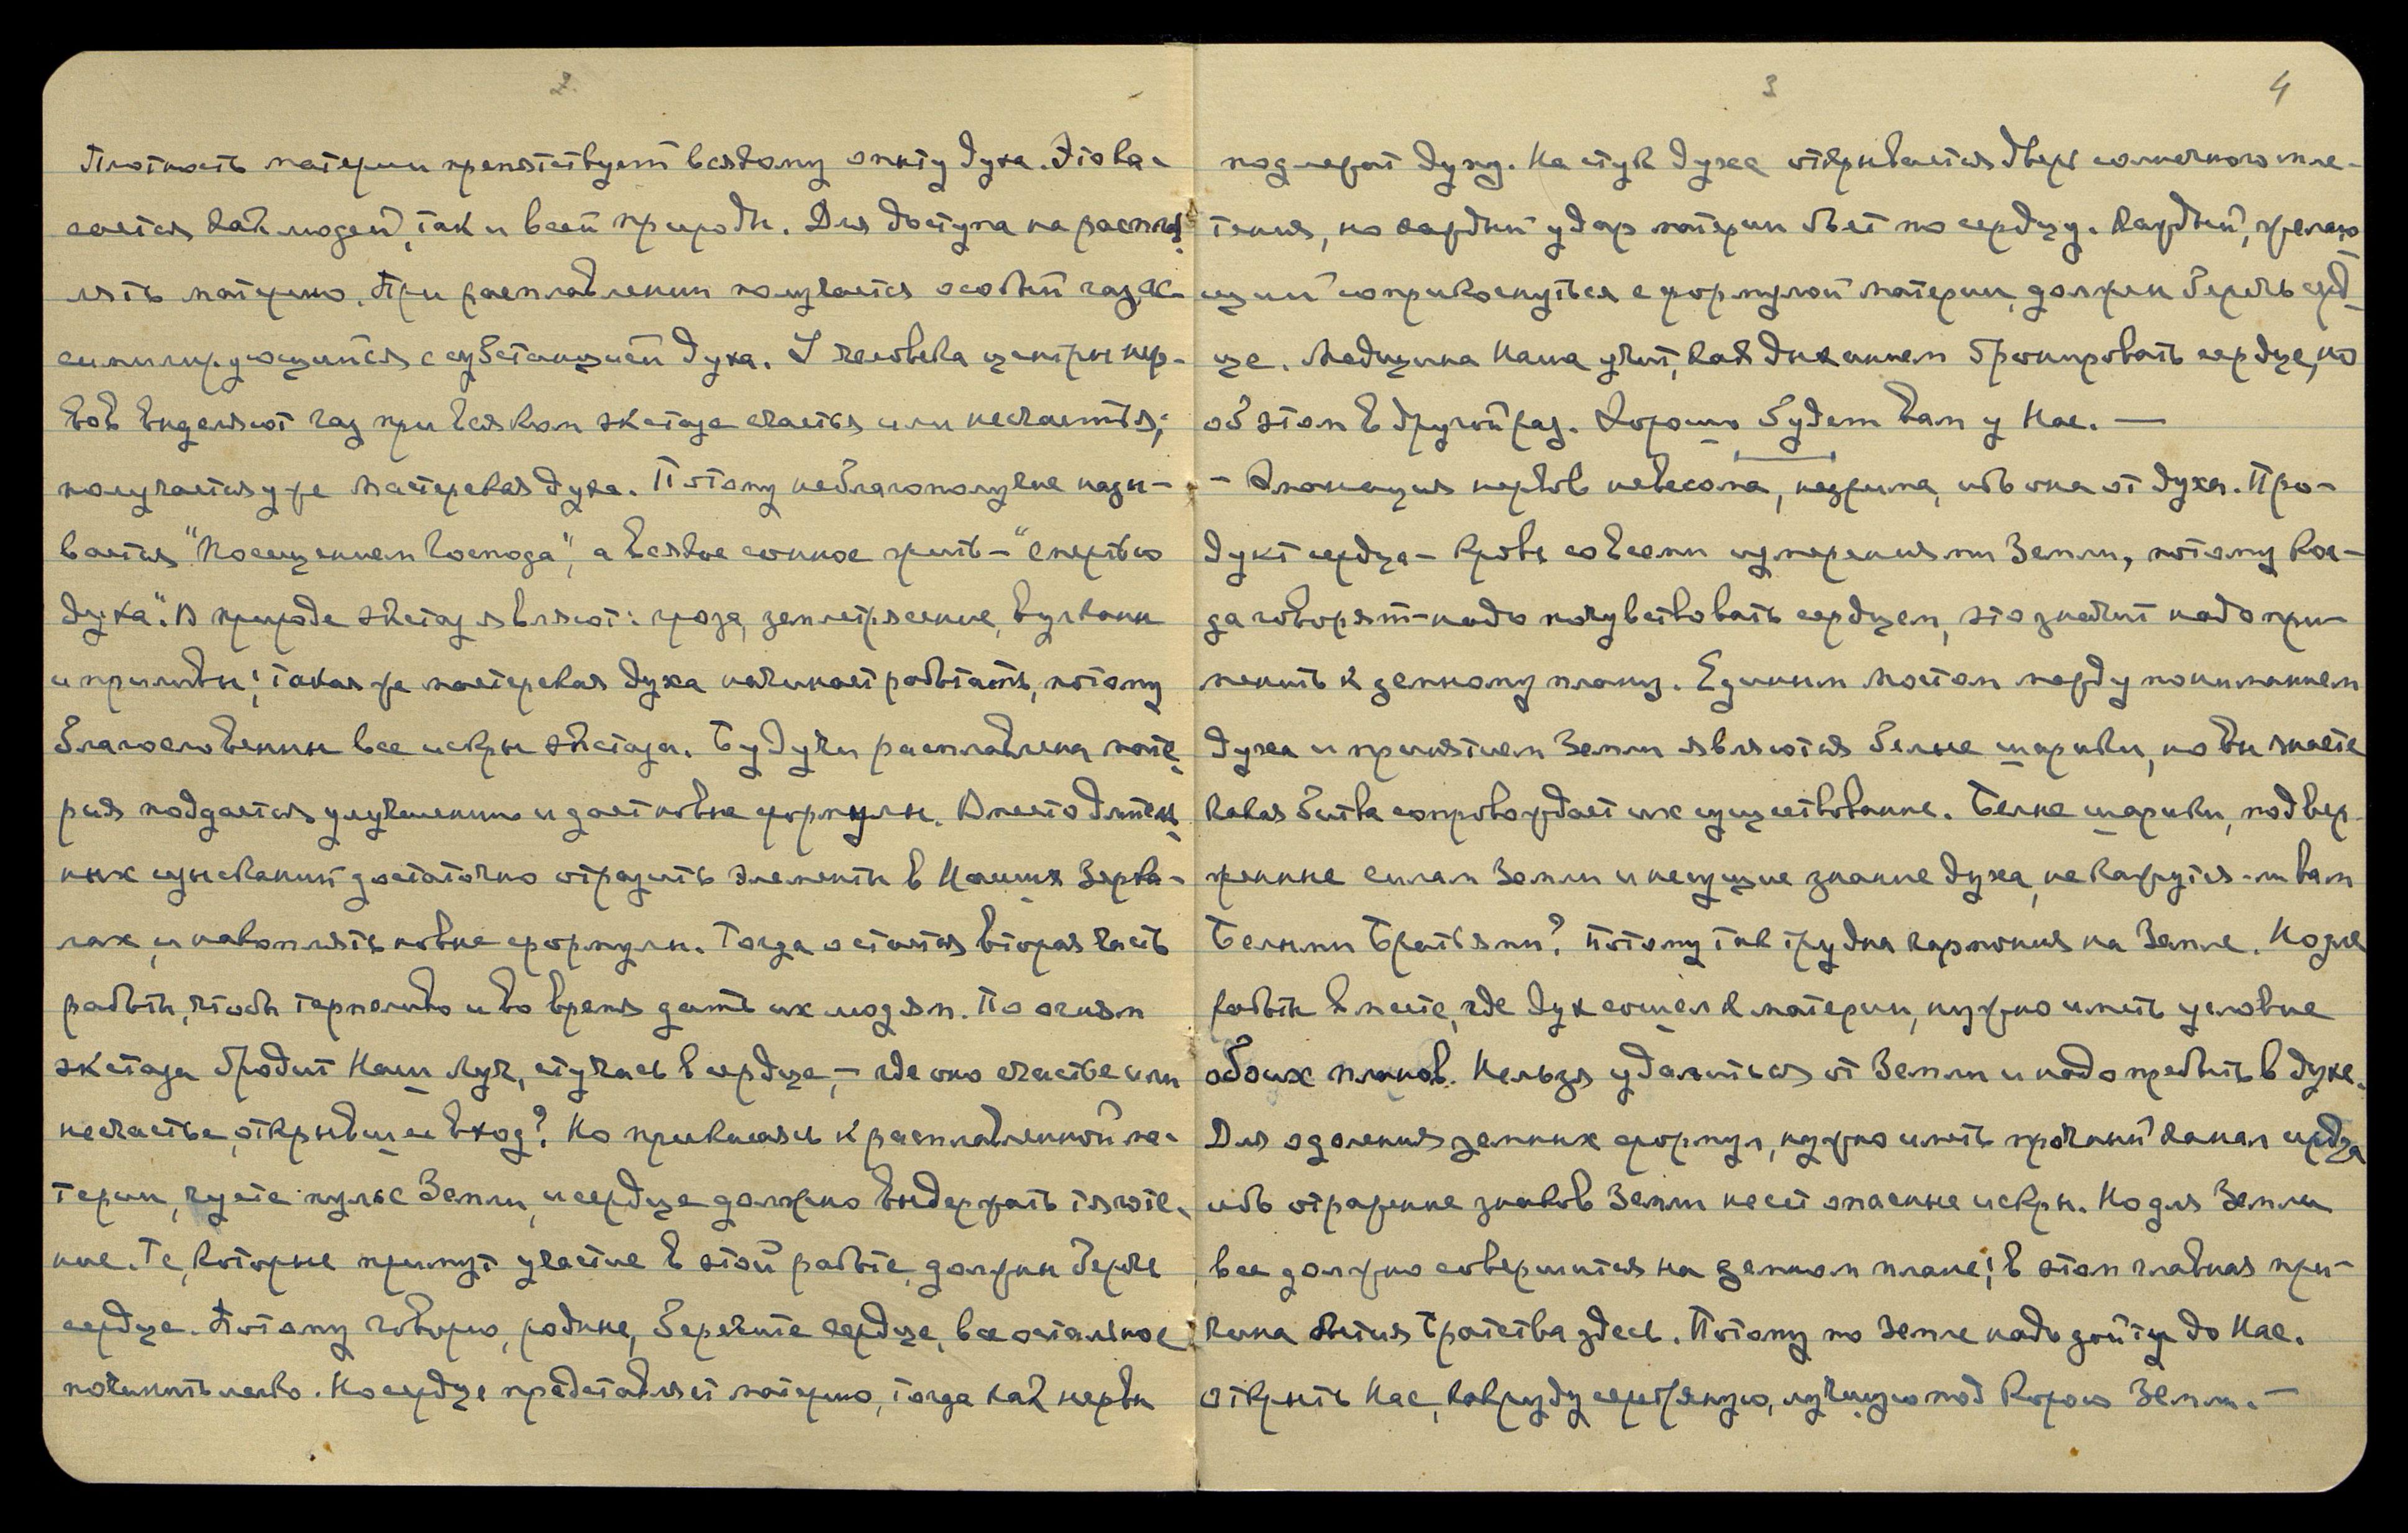 2
Плотность материи препятствует всякому опыту духа. Это ка-
сается как людей, так и всей природы. Для доступа на расплав-
лять материю. При расплавлении получается особый газ, ас-
симилирующийся с субстанцией духа. У человека центры нер-
вов выделяют газ при всяком экстазе счастья или несчастья;
получается уже мастерская духа. Потому неблагополучие назы-
вается "Посещением Господа", а всякое сонное житье - "Смертью
духа". В природе экстаз являют: гроза, землетрясение, вулканы
и приливы; такая же мастерская духа начинает работать, потому
благословенны все искры экстаза. Будучи расплавлена мате-
рия поддается улучшению и дает новые формулы. Вместо длитель-
ных изысканий достаточно отразить элементы в Наших Зерка-
лах, и накоплять новые формулы. Тогда остается вторая часть
работы, чтобы терпеливо и во время дать их людям. По огням
экстаза бродит Наш Луч, стучась в сердце, - где оно счастье или
несчастье, открывшее вход? Но прикасаясь к расплавленной ма-
терии, чуете пульс Земли, и сердце должно выдержать тяготе-
ние. Те, которые примут участие в этой работе, должны беречь
сердце. Потому говорю, родные, берегите сердце, все остальное
починить легко. Но сердце представляет материю, тогда как нервы
3
4
подлежат духу. На стук духа открывается дверь солнечного спле-
тения, но каждый удар материи бьет по сердцу. Каждый, желаю-
щий соприкоснуться с формулой материи, должен беречь серд-
це. Медицина Наша учит, как дыханием бронировать сердце, но
об этом в другой раз. Хорошо будет вам у Нас. —
- Эманация нервов невесома, незрима, ибо она от духа. Про-
дукт сердца - кровь со всеми измерениями Земли, потому ког-
да говорят - надо почувствовать сердцем, это значит надо при-
менить к земному плану. Единым мостом между пониманием
духа и принятием Земли являются белые шарики, но вы знаете
какая битва сопровождает их существование. Белые шарики, подвер-
женные силам Земли и несущие знание духа, не кажутся-ли вам
Белыми Братьями? Потому так трудна гармония на Земле. Но для
работы в месте, где дух сошел к материи, нужно иметь условие
обоих планов. Нельзя удалиться от Земли и надо пребыть в духе.
Для одоления земных формул, нужно иметь прочный канал сердца
ибо отражение знаков Земли несет опасные искры. Но для Земли
все должно совершиться на земном плане; в этом главная при-
чина бытия Братства здесь. Потому по Земле надо дойти до Нас.
Открыть Нас, как руду серебряную, лучшую под корою Земли. —